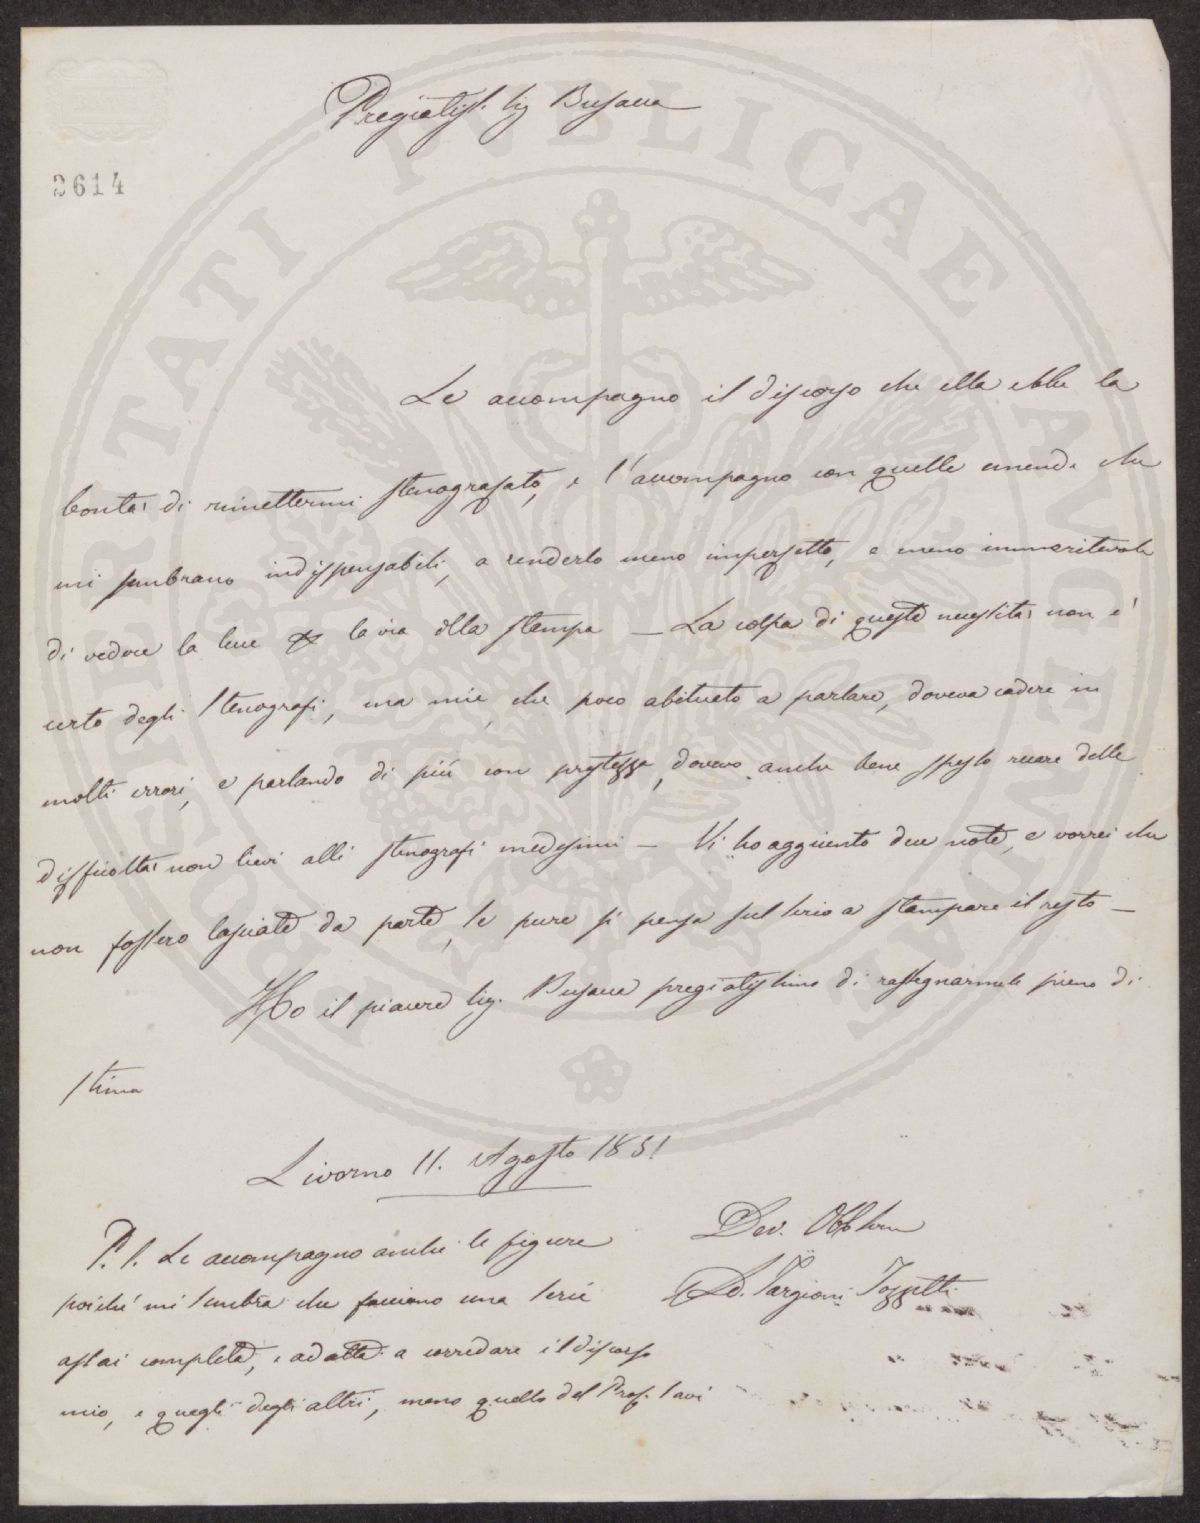 Pregiatiss. Sig Busacca
2614
Le accompagno il discorso che ella ebbe la
bontà di rimettermi stenografato, e l'accompagno con quelle emende che
mi sembrano indispensabili, a renderlo meno imperfetto, e meno immeritevole
di vedere la luce la via della stampa — La colpa di queste necessità non è
certo degli Stenografi, ma mia, che poco abituato a parlare, doveva cadere in
molti errori, e parlando di più con prestezza, dovevo anche bene spesso recare delle
difficoltà non lievi alli stenografi medesimi — Vi ho aggiunto due note, e vorrei che
non fossero lasciate da parte, se pure si pensa sul serio a stampare il resto —
Ho il piacere Sig. Busacca pregiatissimo di rassegnarmele pieno di
stima
Livorno 11. Agosto 1851
P. S. Le accompagno anche le figure
poiché mi sembra che facciano una serie
assai completa, e adatta a corredare il discorso
mio, e quegli degli altri, meno quello del Prof. Savi
Dev. Obb Serv
Ad. Targioni Tozzetti
PROSPERITATI PVBLICAE AVGENDAE